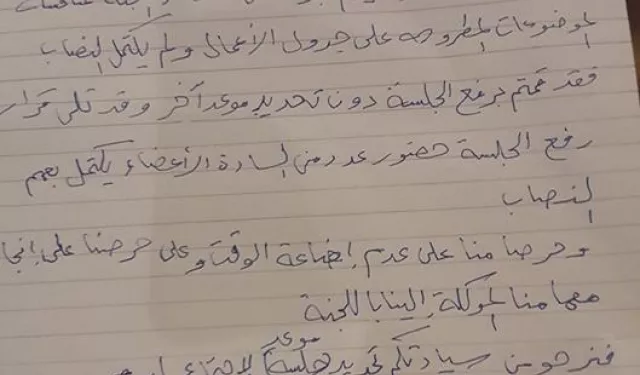 الموضوعات المطروحه على جدول الأعمال ولم يكتمل النصاب
فقد قمتم برفع الجلسة دون تحديد موعد آخر وقد تلى قرار
رفع الجلسة حضور عدد من السادة الأعضاء يكتمل بهم
النصاب
وحرصا منا على عدم إضاعة الوقت وعلى حرصنا على إنجا
مهامنا الموكلة إلينا باللجنة
موعد
فنرجو من سيادتكم تحديد جلسة